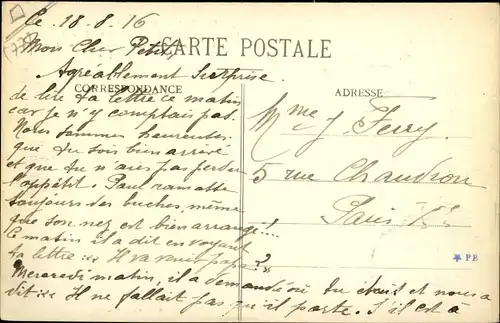 Ce 18-8-16
Mon Cher Petit,
CARTE POSTALE
Agréablement surprise
CORRESPONDANCE
de lire ta lettre ce matin
car je n'y comptais pas.
Nous sommes heureuses
que tu sois bien arrivé
et que tu n'aies pas perdu
l'appétit. Paul ramasse
toujours des buches, même
que son nez est bien arrangé!..
Ce matin il a dit en voyant
ta lettre : Il va venir papa?
Mercredi matin, il a demandé où tu étais et nous a
dit : Il ne fallait pas qu'il parte. S'il est à
ADRESSE
Mme J. Ferry.
5 rue Chaudron
Paris Xe
* PE